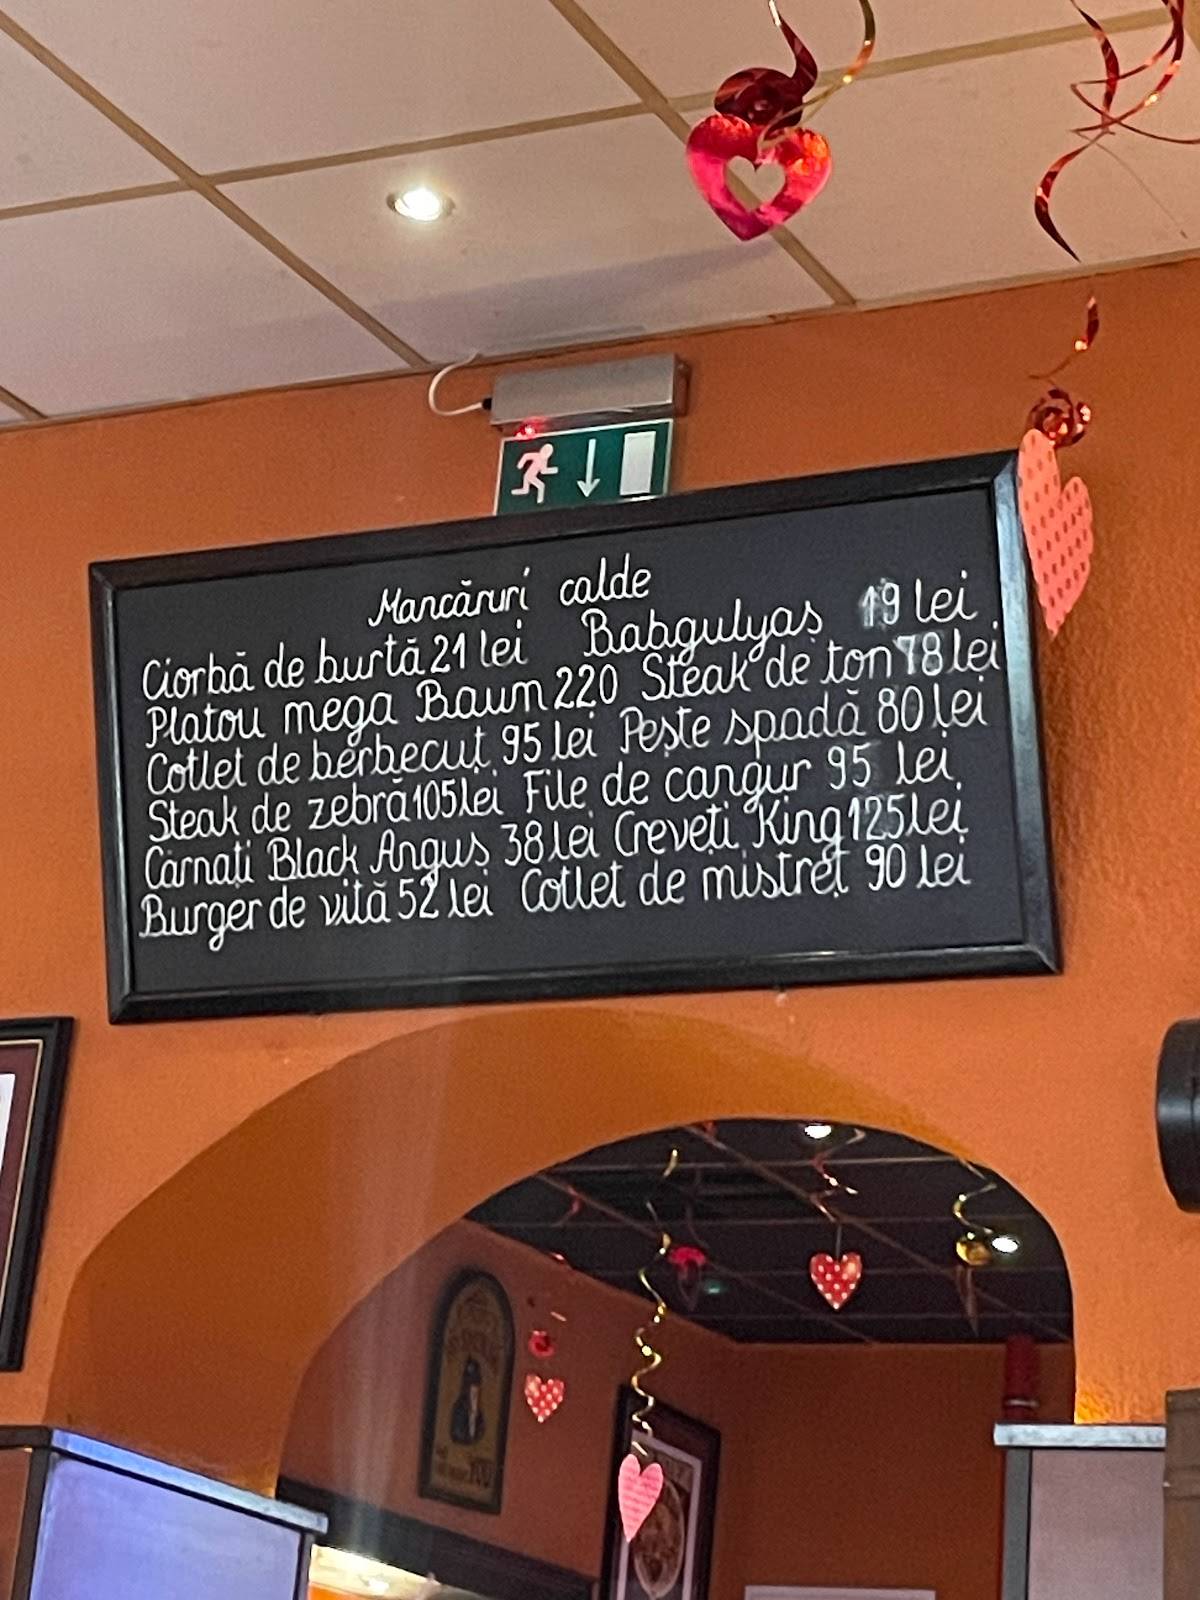 Mancăruri calde
Ciorbă de burtă 21 lei Babgulyaş 19 lei
Platou mega Baum 220 Steak de ton 78 lei
Cotlet de berbecuț 95 lei Peşte spadă 80 lei
Steak de zebră 105 lei File de cangur 95 lei
Cârnați Black Angus 38 lei Creveți King 125 lei
Burger de vită 52 lei Cotlet de mistreț 90 lei